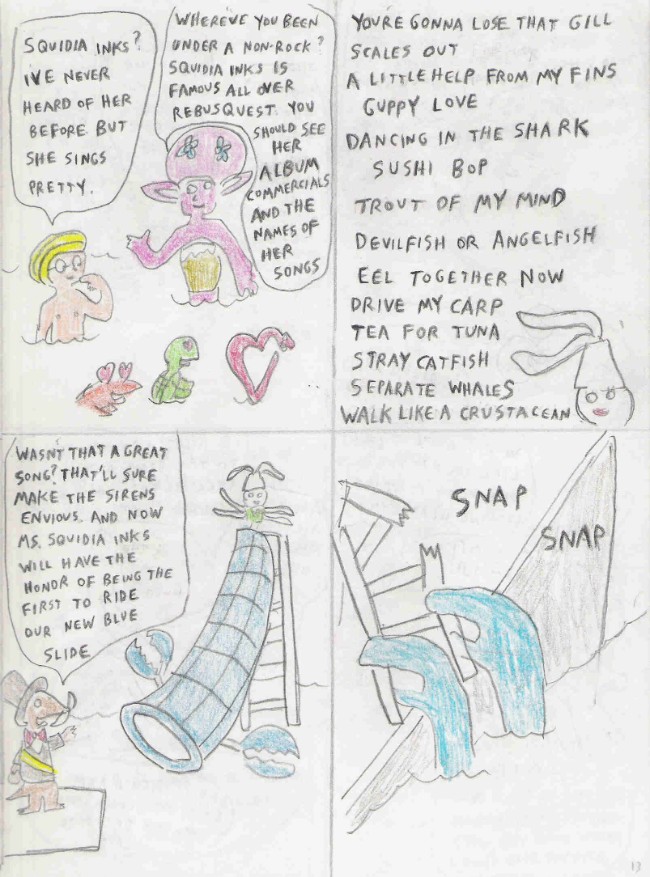 SQUIDIA INKS?
IVE NEVER
HEARD OF HER
BEFORE BUT
SHE SINGS
PRETTY.
WHEREVE YOU BEEN
UNDER A NON-ROCK?
SQUIDIA INKS IS
FAMOUS ALL OVER
REBUSQUEST. YOU
SHOULD SEE
HER
ALBUM
COMMERCIALS
AND THE
NAMES OF
HER
SONGS
YOURE GONNA LOSE THAT GILL
SCALES OUT
A LITTLE HELP FROM MY FINS
GUPPY LOVE
DANCING IN THE SHARK
SUSHI BOP
TROUT OF MY MIND
DEVILFISH OR ANGELFISH
EEL TOGETHER NOW
DRIVE MY CARP
TEA FOR TUNA
STRAY CATFISH
SEPARATE WHALES
WALK LIKE A CRUSTACEAN
WASNT THAT A GREAT
SONG? THAT'LL SURE
MAKE THE SIRENS
ENVIOUS. AND NOW
MS. SQUIDIA INKS
WILL HAVE THE
HONOR OF BEING THE
FIRST TO RIDE
OUR NEW BLUE
SLIDE
SNAP
SNAP
13